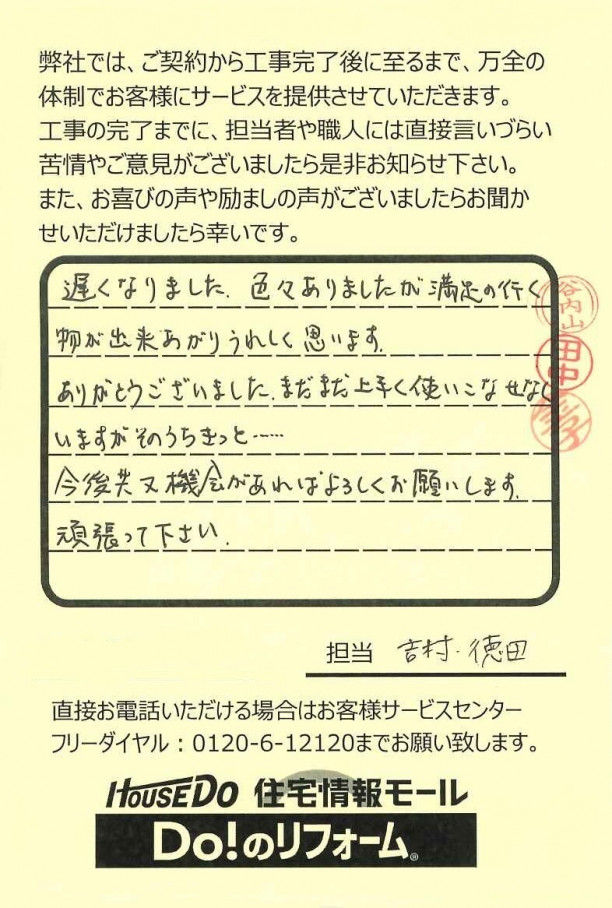 弊社では、ご契約から工事完了後に至るまで、万全の
体制でお客様にサービスを提供させていただきます。
工事の完了までに、担当者や職人には直接言いづらい
苦情やご意見がございましたら是非お知らせ下さい。
また、お喜びの声や励ましの声がございましたらお聞か
せいただけましたら幸いです。
遅くなりました。色々ありましたが満足の行く
物が出来あがりうれしく思います。
ありがとうございました。まだまだ上手く使いこなせなし
いますがそのうちきっと……
今後共又機会があればよろしくお願いします。
頑張って下さい。
谷内山
田中
担当 吉村・徳田
直接お電話いただける場合はお客様サービスセンター
フリーダイヤル：0120-6-12120までお願い致します。
HOUSEDO 住宅情報モール
Do!のリフォーム®